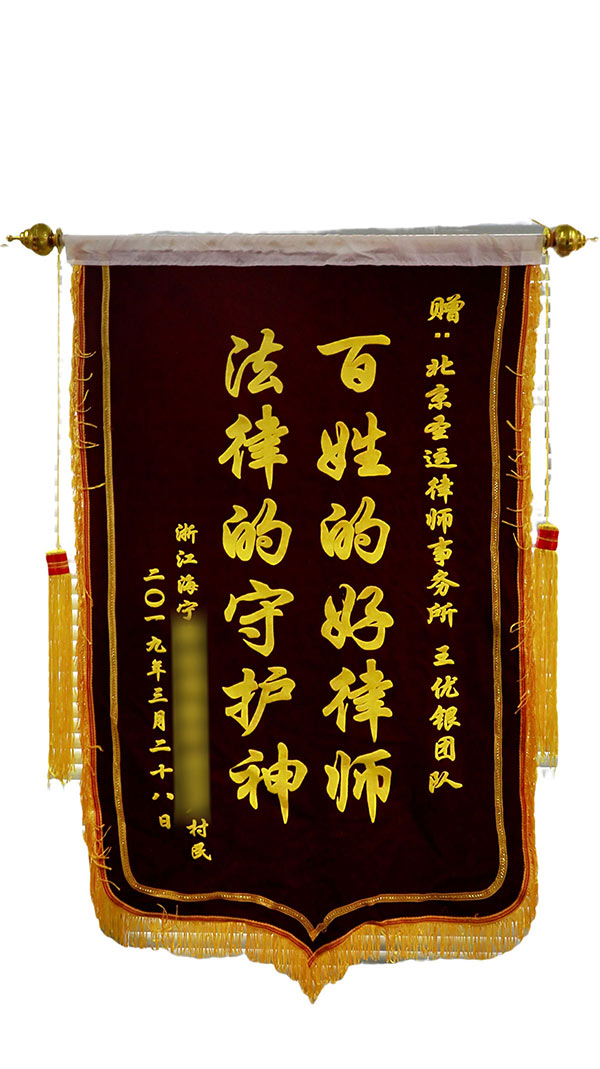 赠：北京圣运律师事务所 王优银团队
百姓的好律师
法律的守护神
浙江海宁 村民
二〇一九年三月二十八日